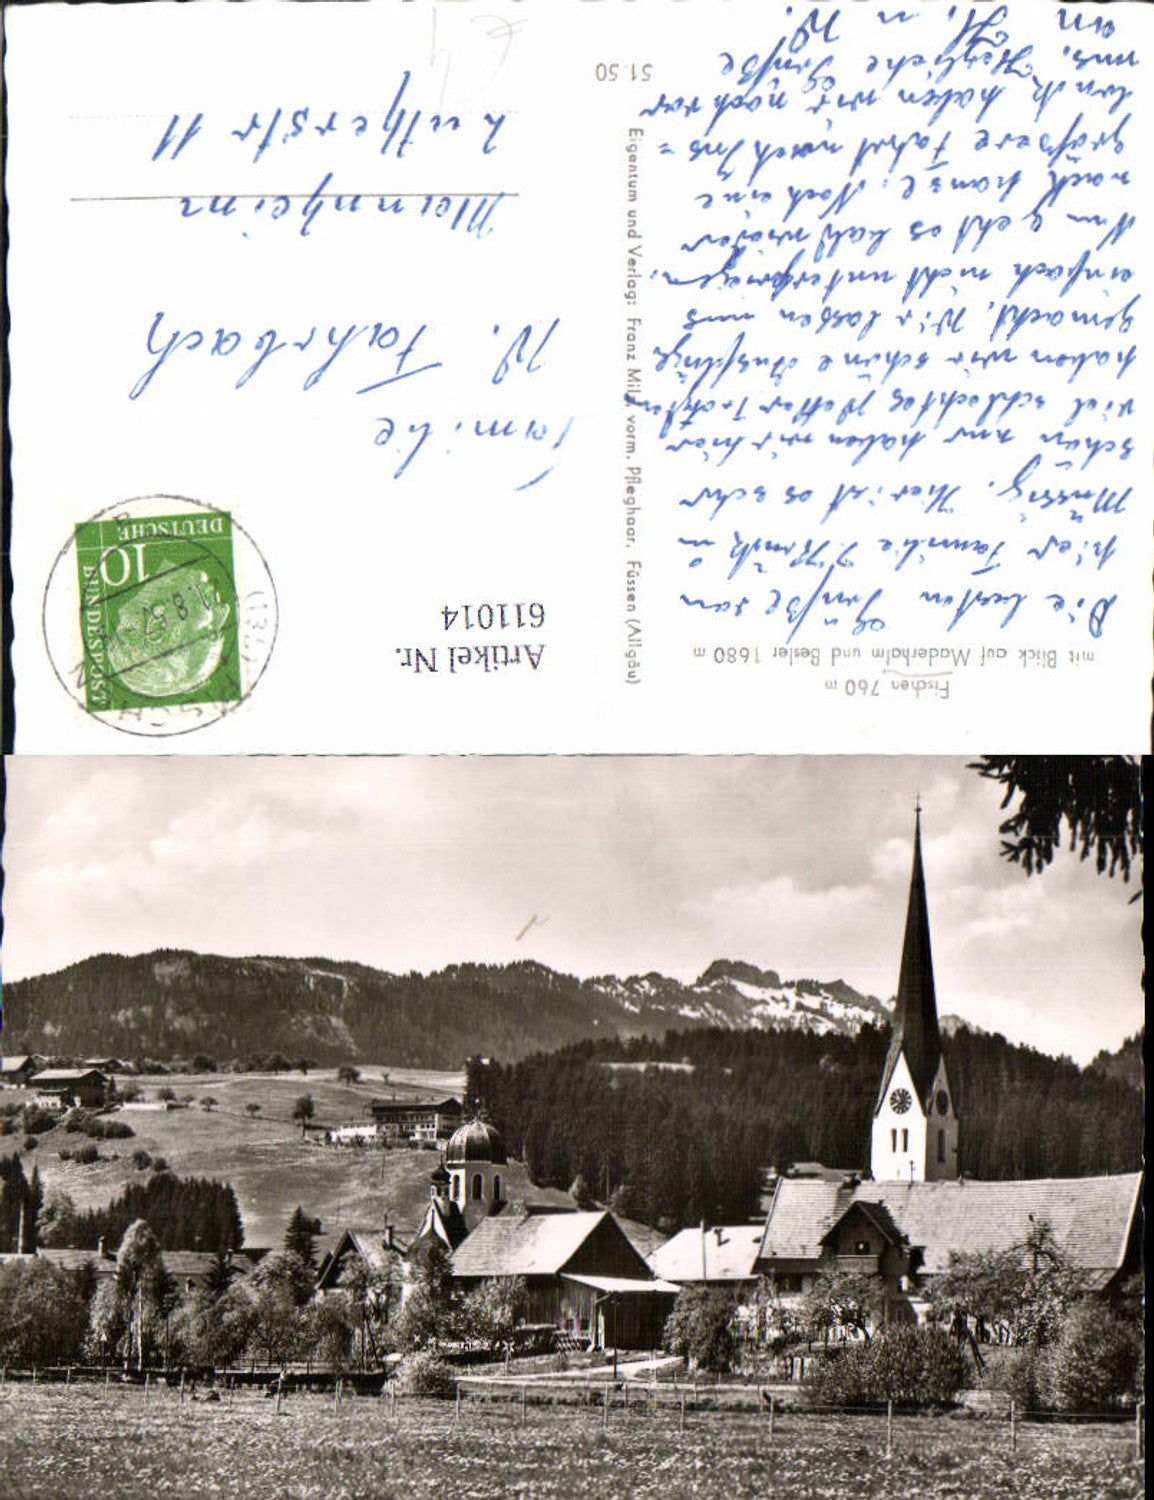 Fischen 760 m
mit Blick auf Maderhalm und Besler 1680 m
Die besten Grüße von
hier Familie
Müssig. Hier ist es sehr
schön nur haben wir hier
viel schlechtes Wetter trotzdem
haben wir schöne Ausflüge
gemacht. Wir lassen uns
einfach nicht unterkriegen.
Nun geht es bald wieder
nach hause. Noch eine
größere Fahrt nach Ins=
bruck haben wir noch vor
uns. Herzliche Grüße
an H. u W.
51.50
Eigentum und Verlag: Franz Milz, vorm. Pfleghaar, Füssen (Allgäu)
Artikel Nr.
611014
DEUTSCHE
BUNDESPOST
10
Familie
W. Fahrbach
Mannheim
Lutherstr 11